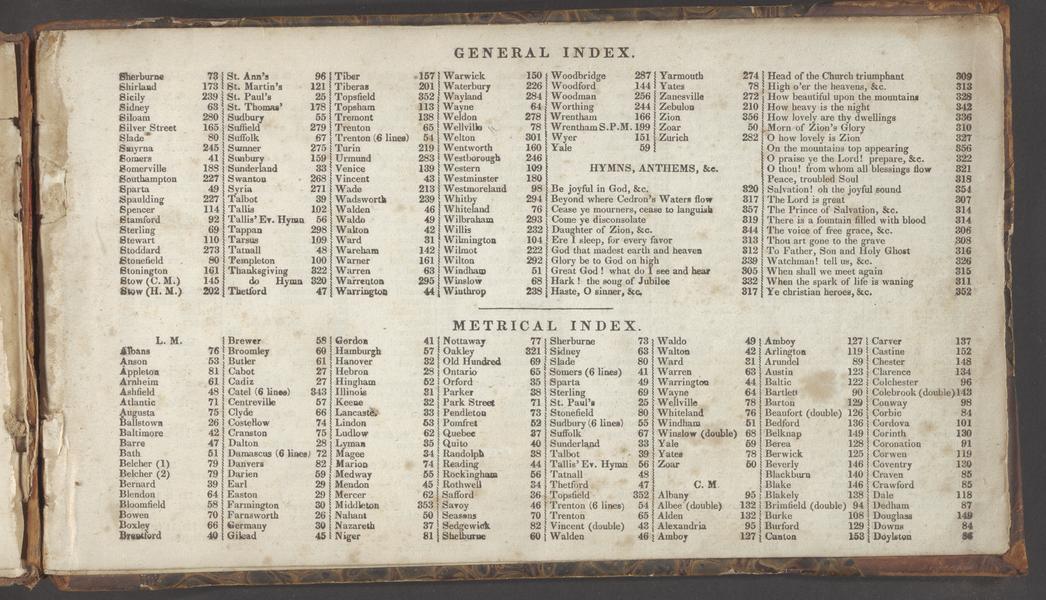 GENERAL INDEX.
Sherburne 73
Shirland 173
Sicily 239
Sidney 63
Siloam 280
Silver Street 165
Slade 80
Smyrna 245
Somers 41
Somerville 188
Southampton 227
Sparta 49
Spaulding 227
Spencer 114
Stamford 92
Sterling 69
Stewart 110
Stoddard 273
Stonefield 80
Stonington 161
Stow (C. M.) 145
Stow (H. M.) 202
St. Ann's 96
St. Martin's 121
St. Paul's 25
St. Thomas' 178
Sudbury 55
Suffield 279
Suffolk 67
Sumner 275
Sunbury 159
Sunderland 33
Swanton 268
Syria 271
Talbot 39
Tallis 102
Tallis' Ev. Hymn 56
Tappan 298
Tarsus 109
Tatnall 48
Templeton 100
Thanksgiving 322
do Hymn 320
Thetford 47
Tiber 157
Tiberas 201
Topsfield 352
Topsham 113
Tremont 138
Trenton 65
Trenton (6 lines) 54
Turin 219
Urmund 283
Venice 139
Vincent 43
Wade 213
Wadsworth 239
Walden 46
Waldo 49
Walton 42
Ward 31
Wareham 142
Warner 161
Warren 63
Warrenton 295
Warrington 44
Warwick 150
Waterbury 226
Wayland 284
Wayne 64
Weldon 278
Wellville 78
Welton 301
Wentworth 160
Westborough 246
Western 109
Westminster 180
Westmoreland 98
Whitby 294
Whiteland 76
Wilbraham 293
Willis 232
Wilmington 104
Wilmot 222
Wilton 292
Windham 51
Winslow 68
Winthrop 238
Woodbridge 287
Woodford 144
Woodman 256
Worthing 244
Wrentham 166
Wrentham S.P.M. 199
Wyer 151
Yale 59
Yarmouth 274
Yates 78
Zanesville 272
Zebulon 210
Zion 356
Zoar 50
Zurich 282
HYMNS, ANTHEMS, &c.
Be joyful in God, &c. 320
Beyond where Cedron's Waters flow 317
Cease ye mourners, cease to languish 357
Come ye disconsolate 319
Daughter of Zion, &c. 344
Ere I sleep, for every favor 313
God that madest earth and heaven 312
Glory be to God on high 339
Great God! what do I see and hear 305
Hark! the song of Jubilee 332
Haste, O sinner, &c. 317
Head of the Church triumphant 309
High o'er the heavens, &c. 313
How beautiful upon the mountains 328
How heavy is the night 342
How lovely are thy dwellings 336
Morn of Zion's Glory 310
O how lovely is Zion 327
On the mountains top appearing 356
O praise ye the Lord! prepare, &c. 322
O thou! from whom all blessings flow 321
Peace, troubled Soul 318
Salvation! oh the joyful sound 354
The Lord is great 307
The Prince of Salvation, &c. 314
There is a fountain filled with blood 314
The voice of free grace, &c. 306
Thou art gone to the grave 308
To Father, Son and Holy Ghost 316
Watchman! tell us, &c. 326
When shall we meet again 315
When the spark of life is waning 311
Ye christian heroes, &c. 352
METRICAL INDEX.
L. M.
Albans 76
Anson 53
Appleton 81
Arnheim 61
Ashfield 48
Atlantic 71
Augusta 75
Ballstown 26
Baltimore 42
Barre 47
Bath 51
Belcher (1) 79
Belcher (2) 79
Bernard 39
Blendon 64
Bloomfield 58
Bowen 70
Boxley 66
Brentford 40
Brewer 58
Broomley 60
Butler 61
Cabot 27
Cadiz 27
Catel (6 lines) 343
Centreville 57
Clyde 66
Costellow 74
Cranston 75
Dalton 28
Damascus (6 lines) 72
Danvers 82
Darien 59
Earl 29
Easton 29
Farmington 30
Farnsworth 26
Germany 30
Gilead 45
Gordon 41
Hamburgh 57
Hanover 32
Hebron 28
Hingham 52
Illinois 31
Keene 32
Lancaste. 33
Lindon 53
Ludlow 62
Lyman 35
Magee 34
Marion 74
Medway 55
Mendon 45
Mercer 62
Middleton 353
Nahant 50
Nazareth 37
Niger 81
Nottaway 77
Oakley 321
Old Hundred 69
Ontario 65
Orford 35
Parker 38
Park Street 71
Pendleton 73
Pomfret 52
Quebec 37
Quito 40
Randolph 38
Reading 44
Rockingham 56
Rothwell 34
Safford 36
Savoy 46
Seasons 70
Sedgewick 82
Shelburne 60
Sherburne 73
Sidney 63
Slade 80
Somers (6 lines) 41
Sparta 49
Sterling 69
St. Paul's 25
Stonefield 80
Sudbury (6 lines) 55
Suffolk 67
Sunderland 33
Talbot 39
Tallis' Ev. Hymn 56
Tatnall 48
Thetford 47
Topsfield 352
Trenton (6 lines) 54
Trenton 65
Vincent (double) 43
Walden 46
Waldo 49
Walton 42
Ward 31
Warren 63
Warrington 44
Wayne 64
Wellville 78
Whiteland 76
Windham 51
Winslow (double) 68
Yale 59
Yates 78
Zoar 50
C. M.
Albany 95
Albee (double) 132
Alden 132
Alexandria 95
Amboy 127
Amboy 127
Arlington 119
Arundel 89
Austin 123
Baltic 122
Bartlett 90
Barton 129
Beaufort (double) 126
Bedford 136
Belknap 149
Berea 128
Berwick 125
Beverly 146
Blackburn 140
Blake 146
Blakely 138
Brimfield (double) 94
Burke 108
Burford 129
Canton 153
Carver 137
Castine 152
Chester 148
Clarence 134
Colchester 96
Colebrook (double) 143
Conway 98
Corbic 84
Cordova 101
Corinth 130
Coronation 91
Corwen 119
Coventry 130
Craven 85
Crawford 85
Dale 118
Dedham 87
Douglass 149
Downs 84
Doylston 86